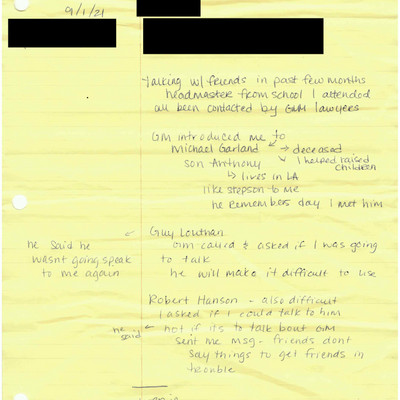 9/1/21
Talking w/ friends in past few months
headmaster from school I attended
all been contacted by GM lawyers
GM introduced me to
Michael Garland → deceased
son Anthony ↘ I helped raised
children
↳ lives in LA
like stepson to me
he remembers day I met him
Guy Louthan
he said he
wasnt going speak
to me again
GM called & asked if I was going
to talk
he will make it difficult to use
Robert Hanson - also difficult
I asked if I could talk to him
he
said ← not if its to talk bout GM
sent me msg - friends dont
say things to get friends in
trouble